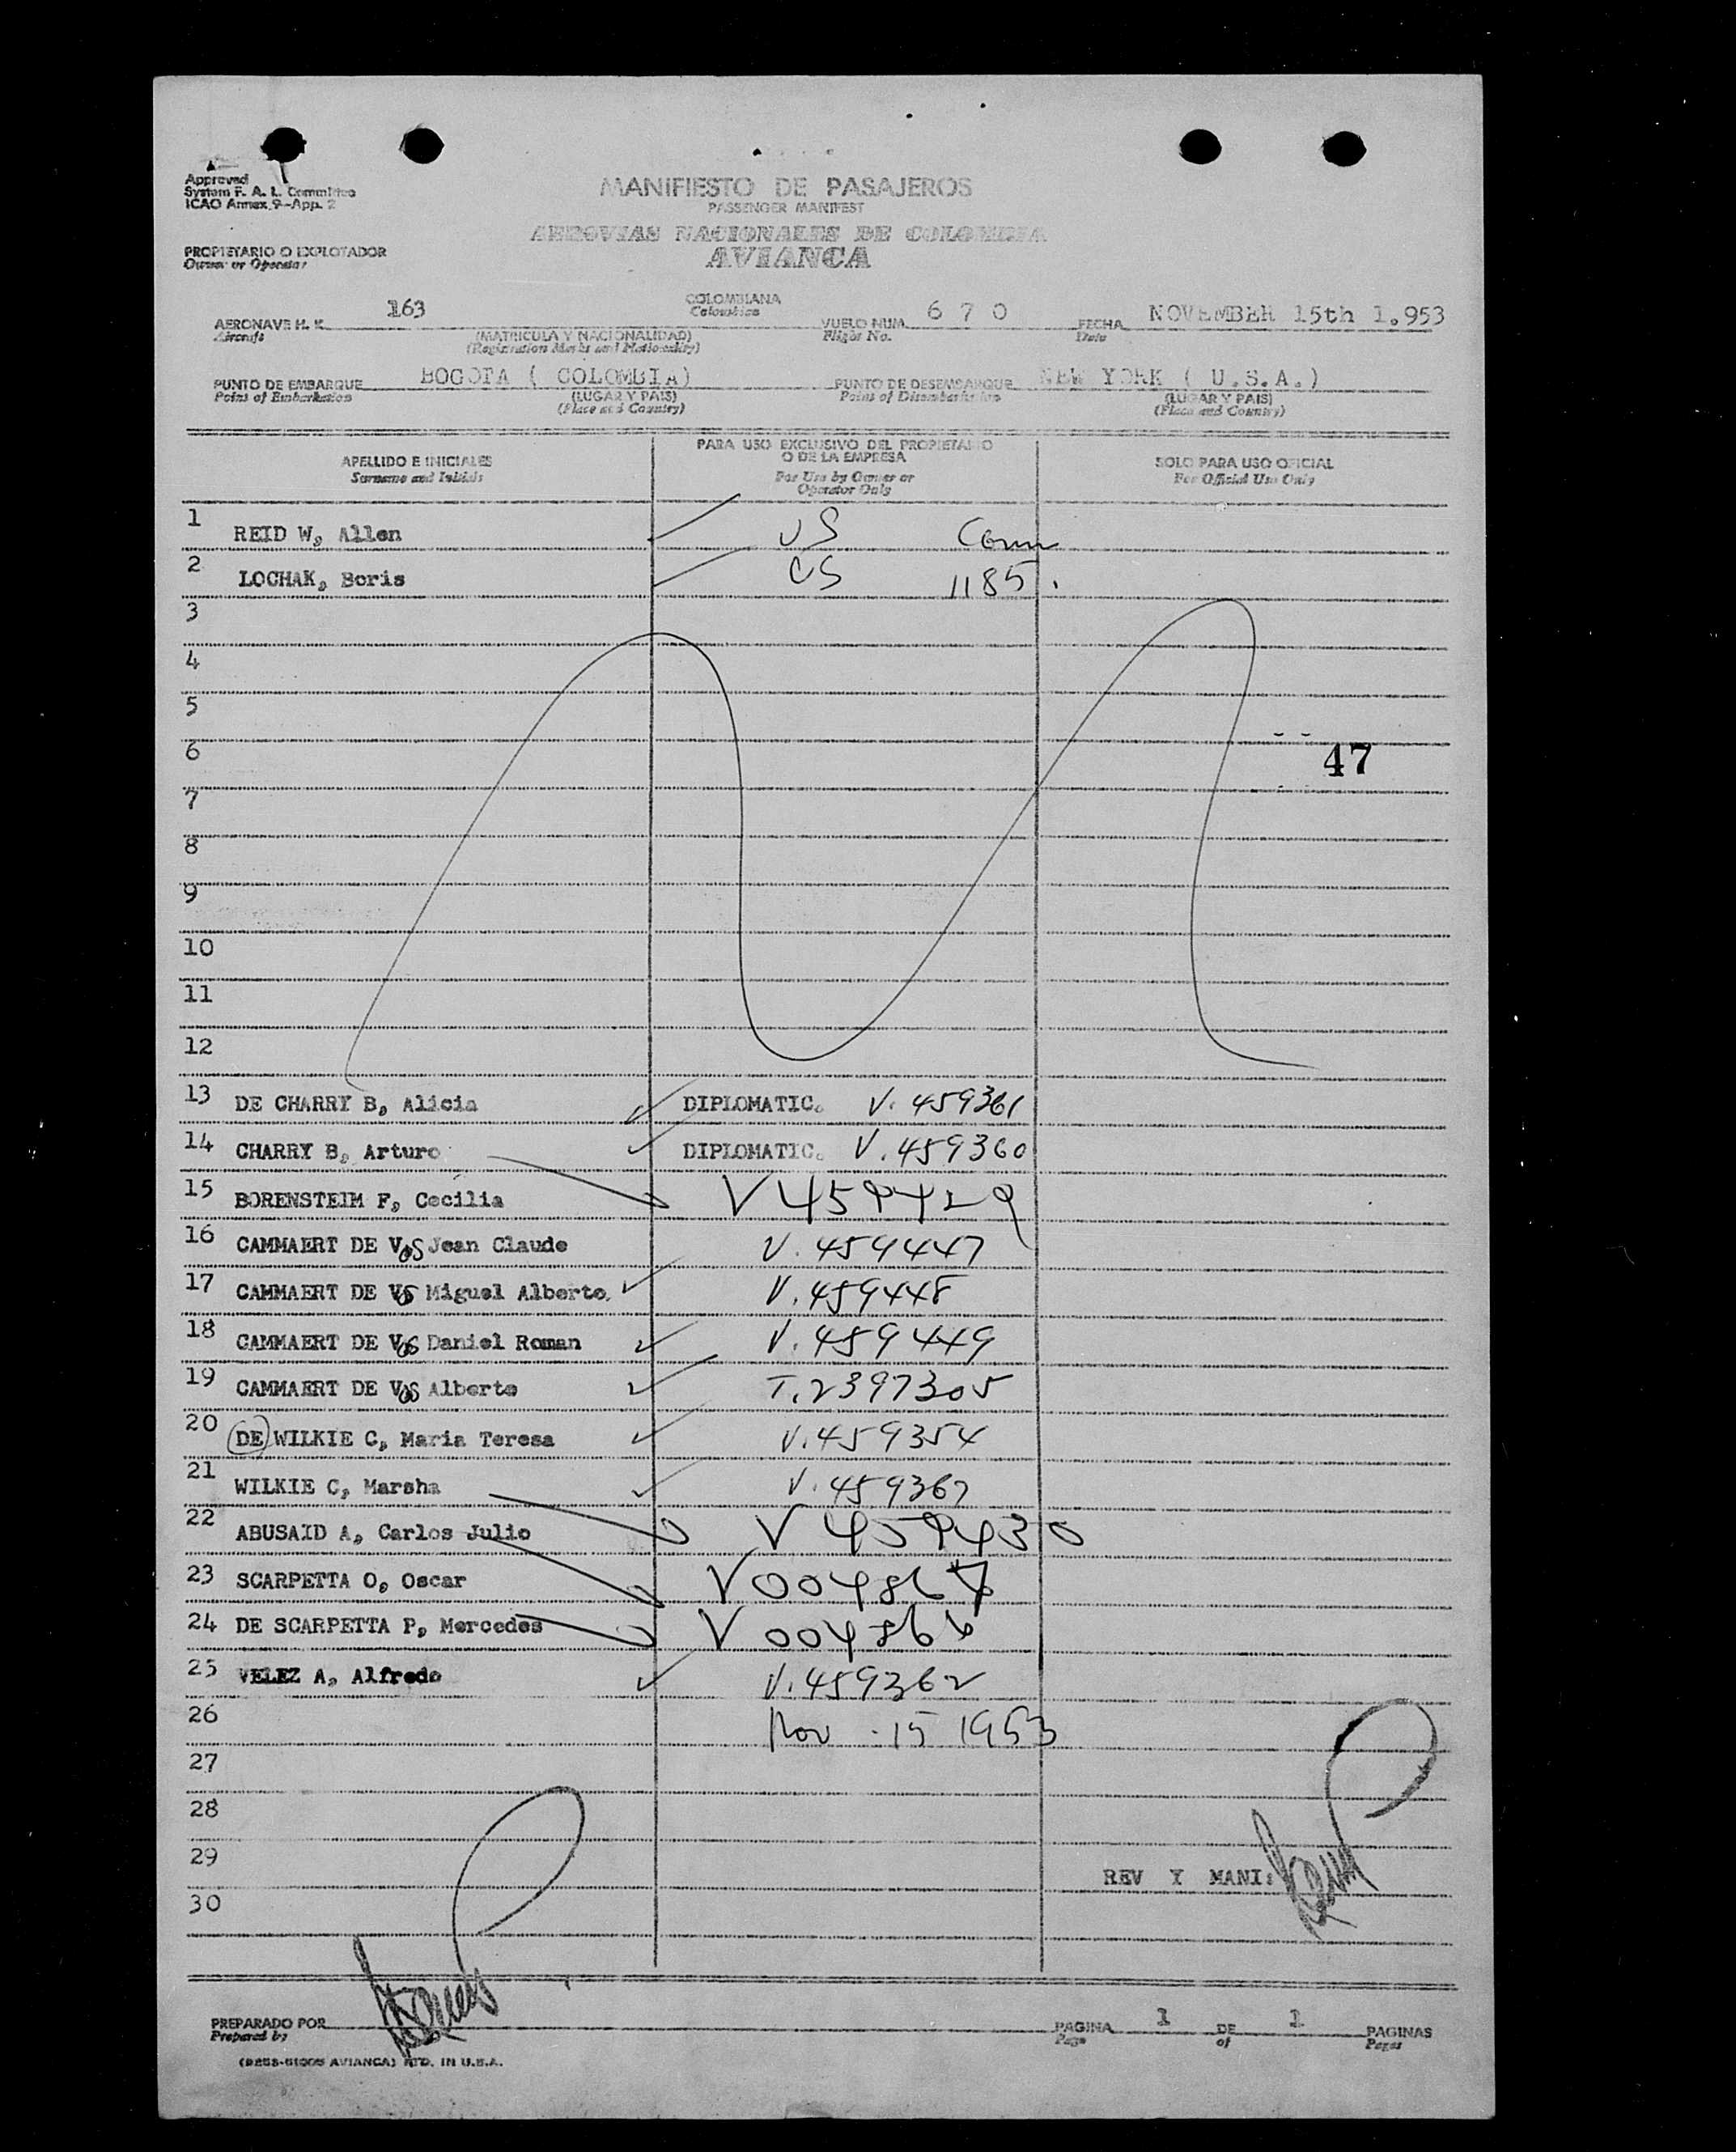 Approved
System F. A. L. Committee
ICAO Annex 9-App. 2
MANIFIESTO DE PASAJEROS
PASSENGER MANIFEST
AEROVIAS NACIONALES DE COLOMBIA
AVIANCA
PROPIETARIO O EXPLOTADOR
Owner or Operator
AERONAVE H. K. 163 COLOMBIANA VUELO NUM. 6 7 0 FECHA NOVEMBER 15th 1.953
Aircraft (MATRICULA Y NACIONALIDAD) Colombian Flight No. Date
(Registration Marks and Nationality)
PUNTO DE EMBARQUE BOGOTA ( COLOMBIA) PUNTO DE DESEMBARQUE NEW YORK ( U.S.A.)
Point of Embarkation (LUGAR Y PAIS) Point of Disembarkation (LUGAR Y PAIS)
(Place and Country) (Place and Country)
APELLIDO E INICIALES PARA USO EXCLUSIVO DEL PROPIETARIO O DE LA EMPRESA SOLO PARA USO OFICIAL
Surname and Initials For Use by Owner or Operator Only For Official Use Only
1 REID W, Allen US Conn
2 LOCHAK, Boris US 1185.
3
4
5
6 47
7
8
9
10
11
12
13 DE CHARRY B, Alicia DIPLOMATIC. V. 459361
14 CHARRY B, Arturo DIPLOMATIC. V. 459360
15 BORENSTEIM F, Cecilia V 459429
16 CAMMAERT DE VOS Jean Claude V. 459447
17 CAMMAERT DE VS Miguel Alberto. V. 459448
18 CAMMAERT DE VOS Daniel Roman V. 459449
19 CAMMAERT DE VOS Alberto T. 2397305
20 DE WILKIE C, Maria Teresa V. 459354
21 WILKIE C, Marsha V. 459367
22 ABUSAID A, Carlos Julio V 459430
23 SCARPETTA O, Oscar V 004867
24 DE SCARPETTA P, Mercedes V 004866
25 VELEZ A, Alfredo V. 459362
26 Nov - 15 1953
27
28
29 REV Y MANI:
30
PREPARADO POR PAGINA 1 DE 1 PAGINAS
Prepared by Page of Pages
AVIANCA) PTD. IN U.S.A.